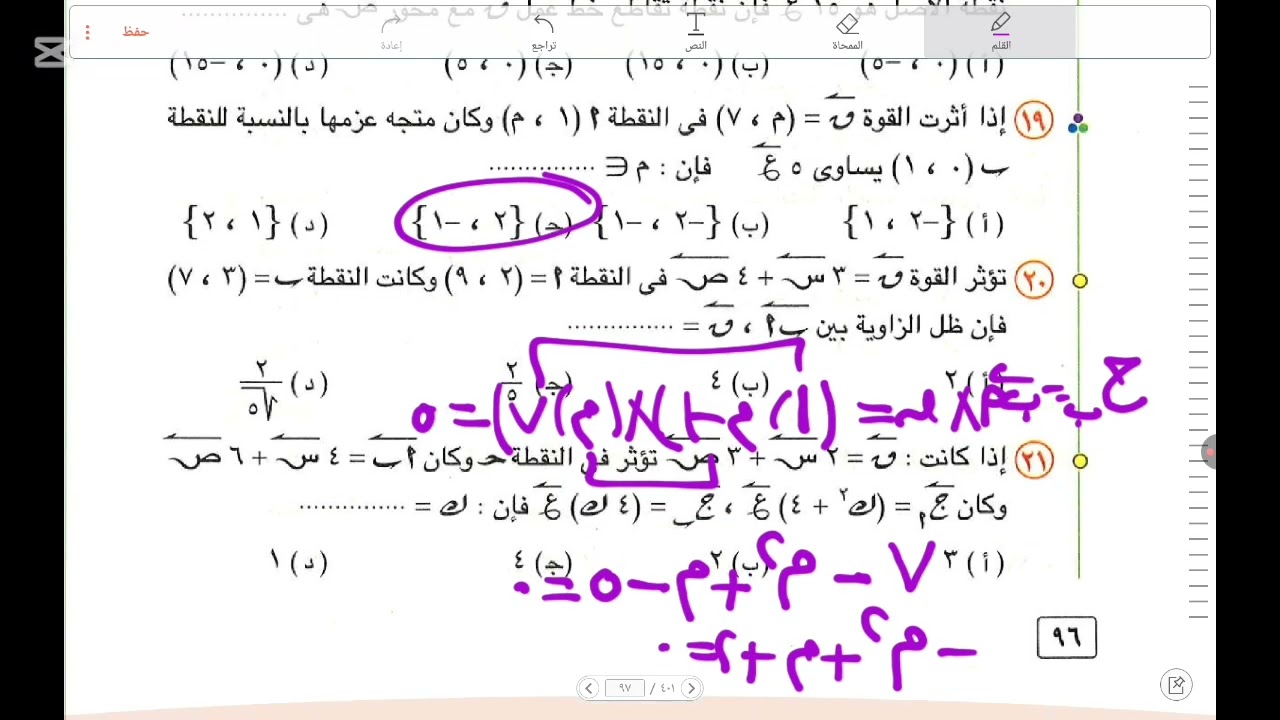 نقطة الأصل هو ١٥ ع فإن نقطة تقاطع خط عمل ق مع محور ص هى ...............
حفظ
إعادة
تراجع
النص
الممحاة
القلم
(أ) (٠ ، −٥) (ب) (٠ ، ١٥) (ج) (٠ ، ٥) (د) (٠ ، −١٥)
١٩ إذا أثرت القوة ق = (م ، ٧) فى النقطة ٢ (١ ، م) وكان متجه عزمها بالنسبة للنقطة
ب (٠ ، ١) يساوى ٥ ع فإن : م ∈ ...............
(أ) {−٢ ، ١} (ب) {−٢ ، −١} (ج) {٢ ، −١} (د) {١ ، ٢}
٢٠ تؤثر القوة ق = ٣ س + ٤ ص فى النقطة ٢ = (٢ ، ٩) وكانت النقطة ب = (٣ ، ٧)
فإن ظل الزاوية بين ب٢ ، ق = ...............
(أ) ٢ (ب) ٤ (ج) ٢/٥ (د) ٢/√٥
ج ب = ب٢ × ق = (١ ، م − ١) × (م ، ٧) = ٥
٢١ إذا كانت : ق = ٢ س + ٣ ص تؤثر فى النقطة حـ وكان ٢ب = ٤ س + ٦ ص
وكان ج٢ = (ك² + ٤) ع ، جب = (٤ ك) ع فإن : ك = ...............
(أ) ٣ (ب) ٢ (ج) ٤ (د) ١
٧ − م² + م − ٥ = ٠
− م² + م + ٢ = ٠
٩٦
٩٧ / ٤٠١